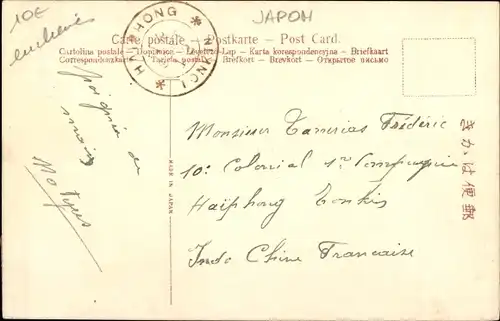 10E
enchère
JAPON
HAIPHONG
Carte postale – Postkarte – Post Card.
Cartolina postale – Dopisnice – Levelező-Lap – Karta korespondencyjna – Briefkaart
Correspondenzkarte – Tarjeta postal – Brefkort – Brevkort – Открытое письмо
poignée de
mains
MADE IN JAPAN
Monsieur Frédéric
10e Colonial 1re Compagnie
Haiphong Tonkin
Indo Chine Francaise
きかは便郵